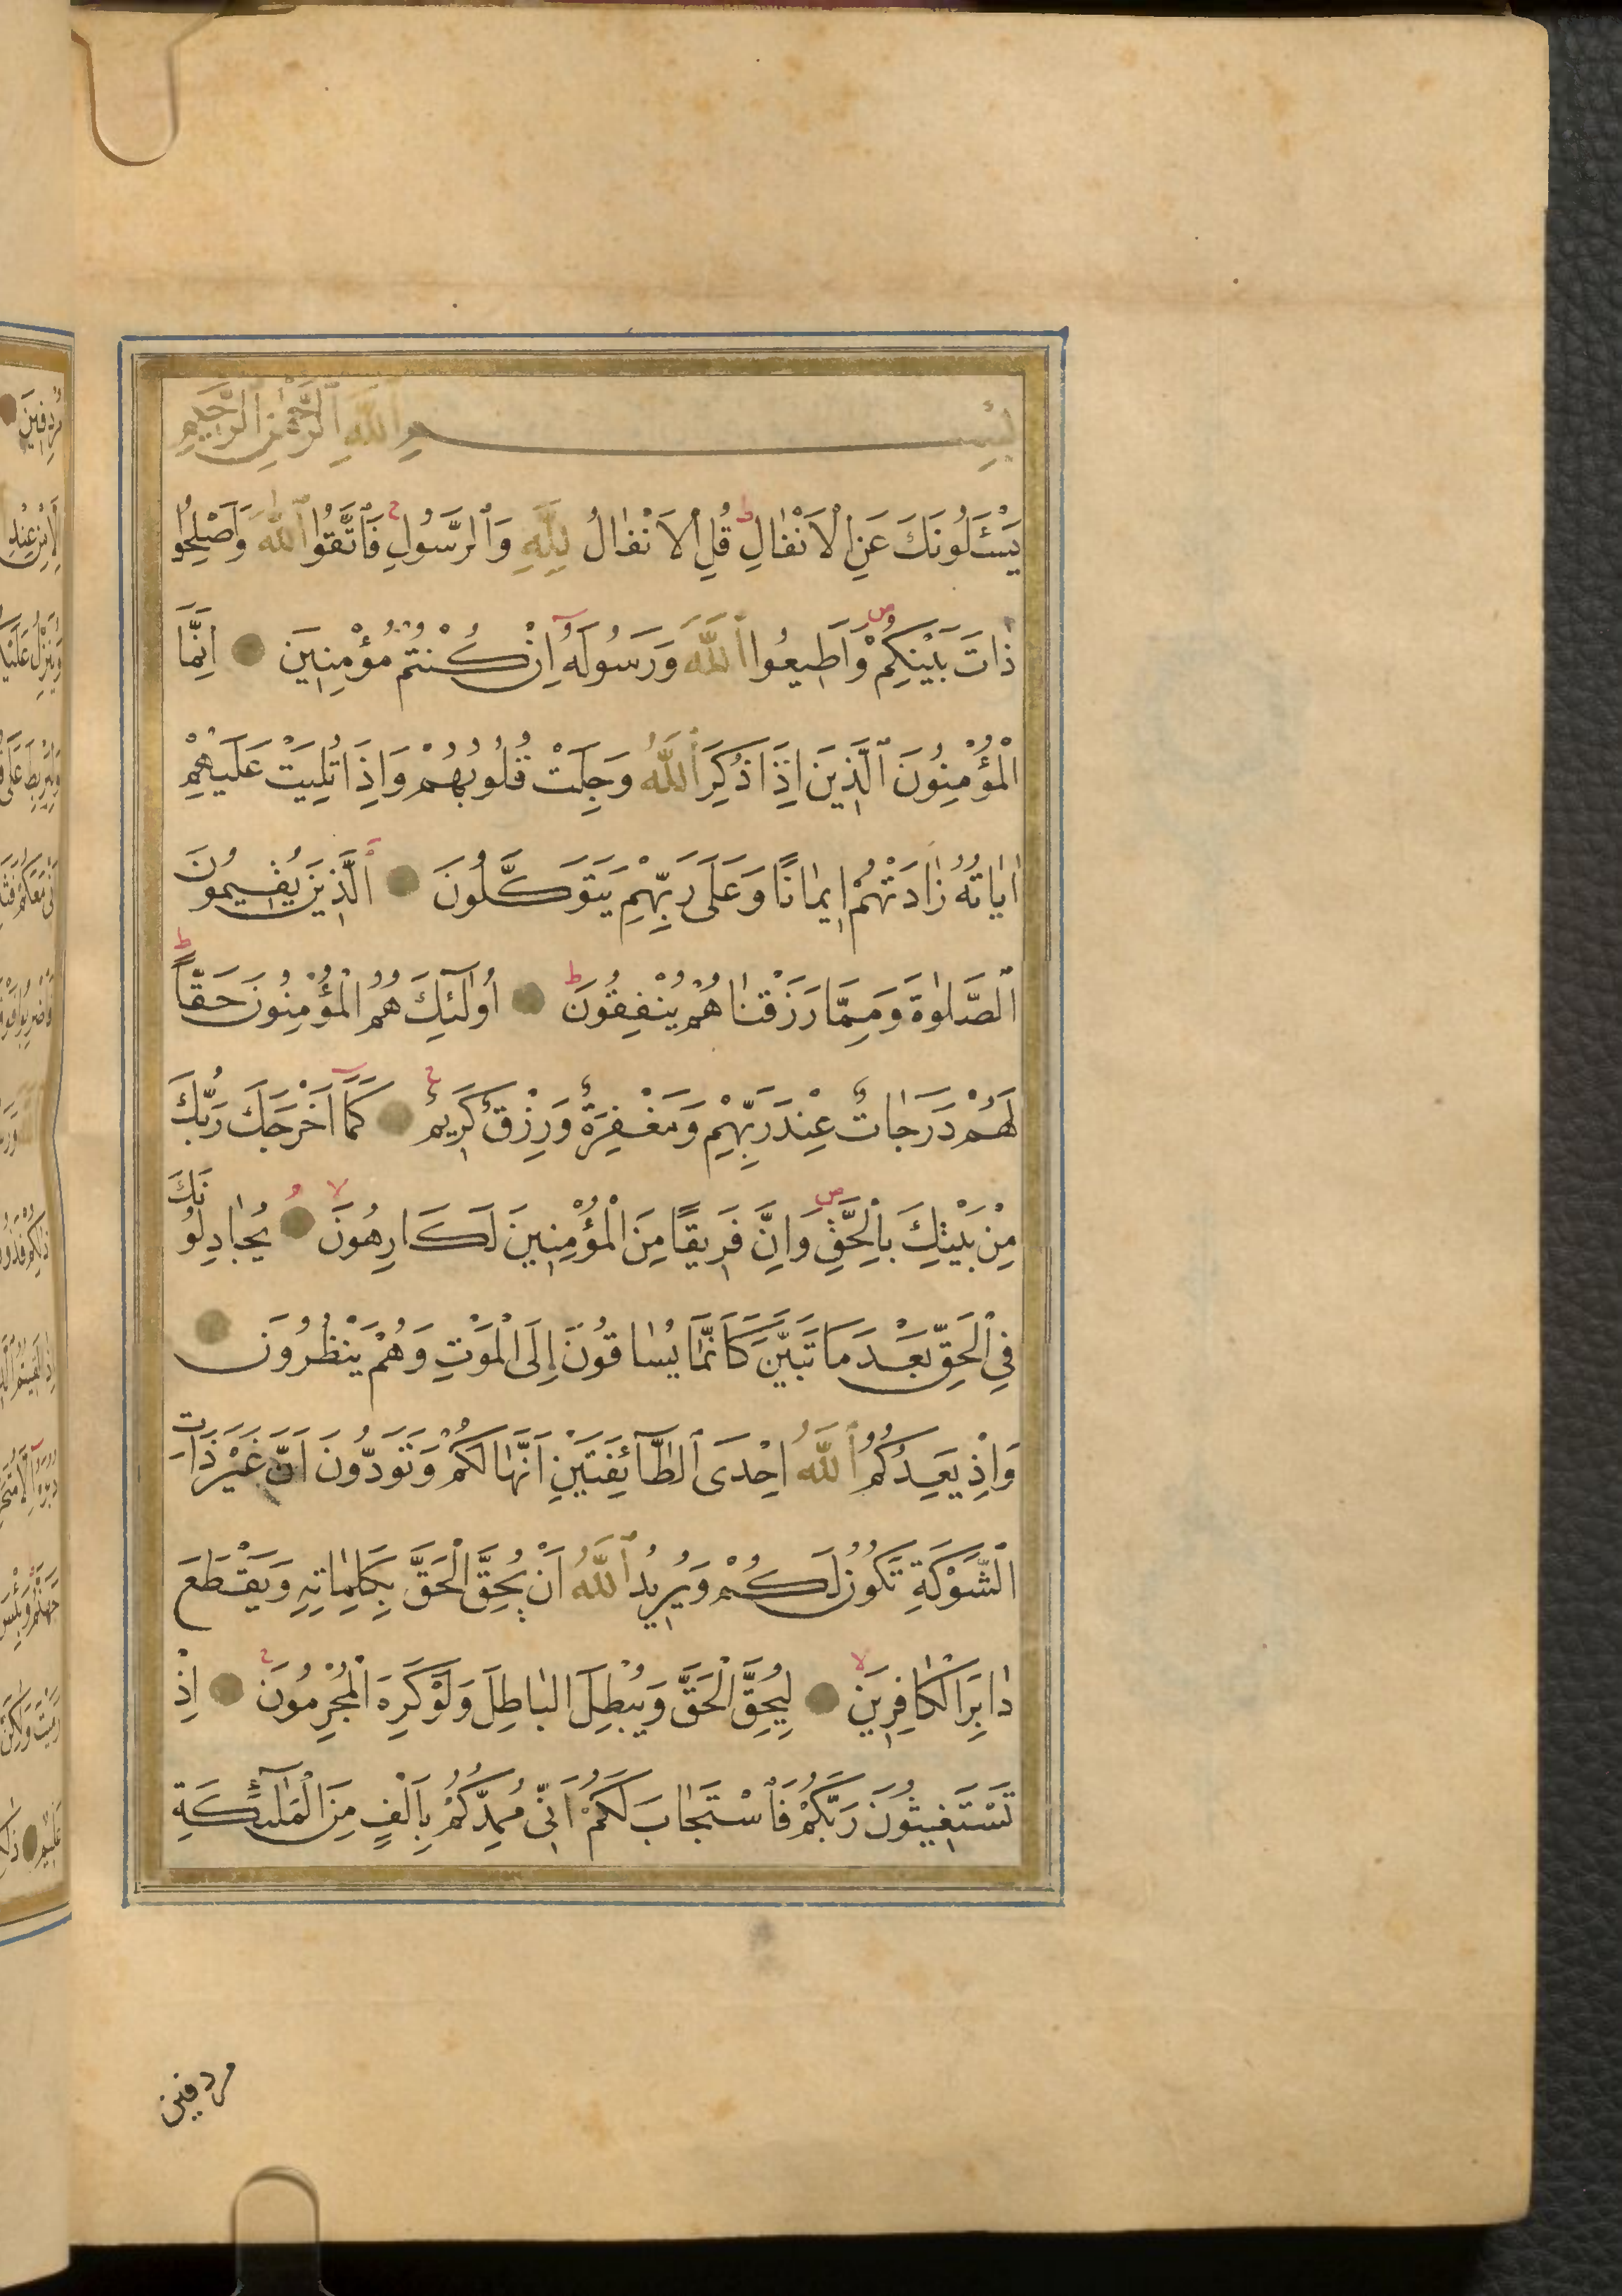 بِسْمِ اللّٰهِ الرَّحْمٰنِ الرَّحِيمِ
يَسْـَٔلُونَكَ عَنِ الْاَنْفَالِ ط قُلِ الْاَنْفَالُ لِلّٰهِ وَالرَّسُولِ ج فَاتَّقُوا اللّٰهَ وَاَصْلِحُوا
ذَاتَ بَيْنِكُمْ ص وَاَطِيعُوا اللّٰهَ وَرَسُولَهُٓ اِنْ كُنْتُمْ مُؤْمِنِينَ اِنَّمَا
الْمُؤْمِنُونَ الَّذِينَ اِذَا ذُكِرَ اللّٰهُ وَجِلَتْ قُلُوبُهُمْ وَاِذَا تُلِيَتْ عَلَيْهِمْ
اٰيَاتُهُ زَادَتْهُمْ اِيمَانًا وَعَلَى رَبِّهِمْ يَتَوَكَّلُونَ الَّذِينَ يُقِيمُونَ
الصَّلٰوةَ وَمِمَّا رَزَقْنَاهُمْ يُنْفِقُونَ ط اُولٰٓئِكَ هُمُ الْمُؤْمِنُونَ حَقًّا ط
لَهُمْ دَرَجَاتٌ عِنْدَ رَبِّهِمْ وَمَغْفِرَةٌ وَرِزْقٌ كَرِيمٌ ج كَمَٓا اَخْرَجَكَ رَبُّكَ
مِنْ بَيْتِكَ بِالْحَقِّ ص وَاِنَّ فَرِيقًا مِنَ الْمُؤْمِنِينَ لَكَارِهُونَ لا يُجَادِلُونَكَ
فِي الْحَقِّ بَعْدَ مَا تَبَيَّنَ كَاَنَّمَا يُسَاقُونَ اِلَى الْمَوْتِ وَهُمْ يَنْظُرُونَ
وَاِذْ يَعِدُكُمُ اللّٰهُ اِحْدَى الطَّٓائِفَتَيْنِ اَنَّهَا لَكُمْ وَتَوَدُّونَ اَنَّ غَيْرَ ذَاتِ
الشَّوْكَةِ تَكُونُ لَكُمْ وَيُرِيدُ اللّٰهُ اَنْ يُحِقَّ الْحَقَّ بِكَلِمَاتِهِ وَيَقْطَعَ
دَابِرَ الْكَافِرِينَ لا لِيُحِقَّ الْحَقَّ وَيُبْطِلَ الْبَاطِلَ وَلَوْ كَرِهَ الْمُجْرِمُونَ ج اِذْ
تَسْتَغِيثُونَ رَبَّكُمْ فَاسْتَجَابَ لَكُمْ اَنِّي مُمِدُّكُمْ بِاَلْفٍ مِنَ الْمَلٰٓئِكَةِ
مردفين